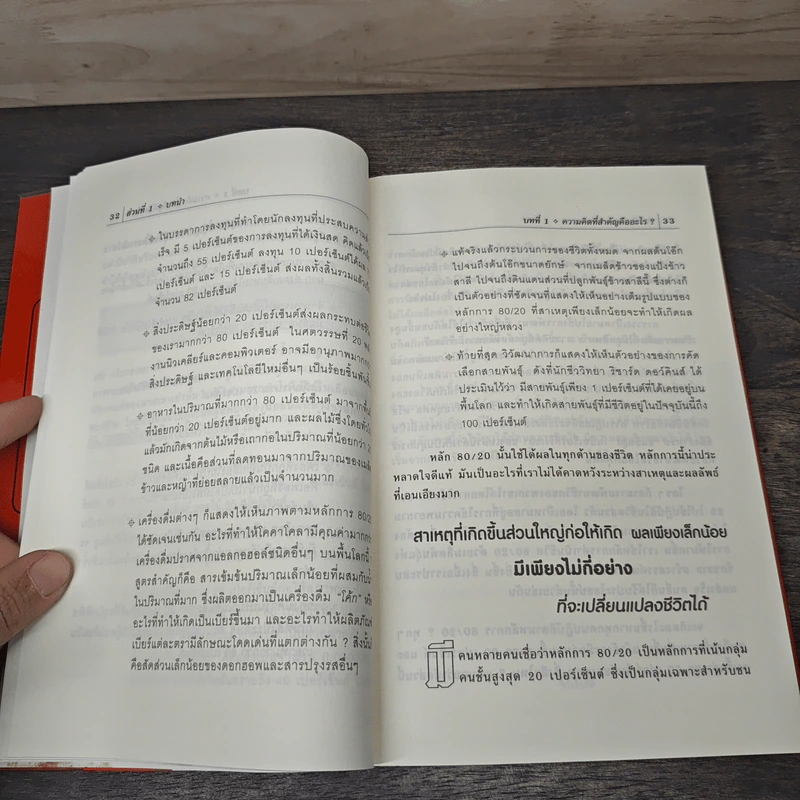 32 ส่วนที่ 1 ❖ บทนำ
❖ ในบรรดาการลงทุนที่ทำโดยนักลงทุนที่ประสบความสำ
เร็จ มี 5 เปอร์เซ็นต์ของการลงทุนที่ได้เงินสด คิดแล้วเป็น
จำนวนถึง 55 เปอร์เซ็นต์ ลงทุน 10 เปอร์เซ็นต์ได้ผล
เปอร์เซ็นต์ และ 15 เปอร์เซ็นต์ ส่งผลทั้งสิ้นรวมแล้วเป็น
จำนวน 82 เปอร์เซ็นต์
❖ สิ่งประดิษฐ์น้อยกว่า 20 เปอร์เซ็นต์ส่งผลกระทบต่อชีวิต
ของเรามากกว่า 80 เปอร์เซ็นต์ ในศตวรรษที่ 20 พลัง
งานนิวเคลียร์และคอมพิวเตอร์ อาจมีอานุภาพมากกว่า
สิ่งประดิษฐ์ และเทคโนโลยีใหม่อื่นๆ เป็นร้อยชิ้นพันชิ้น
❖ อาหารในปริมาณที่มากกว่า 80 เปอร์เซ็นต์ มาจากพื้น
ที่น้อยกว่า 20 เปอร์เซ็นต์อยู่มาก และผลไม้ซึ่งโดยทั่วไป
แล้วมักเกิดจากต้นไม้หรือเถาองุ่นในปริมาณที่น้อยกว่า
ชนิด และเนื้อคือส่วนที่ลดทอนมาจากปริมาณของเมล็ด
ข้าวและหญ้าที่ย่อยสลายแล้วเป็นจำนวนมาก
❖ เครื่องดื่มต่างๆ ก็แสดงให้เห็นภาพตามหลักการ 80/20
ได้ชัดเจนเช่นกัน อะไรที่ทำให้โคคาโคลามีคุณค่ามากกว่า
เครื่องดื่มปราศจากแอลกอฮอล์ชนิดอื่นๆ บนพื้นโลกนี้
สูตรสำคัญก็คือ สารเข้มข้นปริมาณเล็กน้อยที่ผสมกับน้ำ
ในปริมาณที่มาก ซึ่งผลิตออกมาเป็นเครื่องดื่ม "โค้ก" หรือ
อะไรที่ทำให้เกิดเป็นเบียร์ขึ้นมา และอะไรทำให้ผลิตภัณฑ์
เบียร์แต่ละตรามีลักษณะโดดเด่นที่แตกต่างกัน ? สิ่งนั้นก็
คือสัดส่วนเล็กน้อยของดอกฮอพและสารปรุงรสอื่นๆ
บทที่ 1 ❖ ความคิดที่สำคัญคืออะไร ? 33
❖ แท้จริงแล้วกระบวนการของชีวิตทั้งหมด จากผลต้นโอ๊ก
ไปจนถึงต้นโอ๊กขนาดยักษ์ จากเมล็ดข้าวของแป้งข้าว
สาลี ไปจนถึงดินแดนส่วนที่ปลูกพันธุ์ข้าวสาลีนี้ ซึ่งต่างก็
เป็นตัวอย่างที่ชัดเจนที่แสดงให้เห็นอย่างเต็มรูปแบบของ
หลักการ 80/20 ที่สาเหตุเพียงเล็กน้อยจะทำให้เกิดผล
อย่างใหญ่หลวง
❖ ท้ายที่สุด วิวัฒนาการก็แสดงให้เห็นตัวอย่างของการคัด
เลือกสายพันธุ์ ดังที่นักชีววิทยา ริชาร์ด ดอว์คินส์ ได้
ประเมินไว้ว่า มีสายพันธุ์เพียง 1 เปอร์เซ็นต์ที่ได้เคยอยู่บน
พื้นโลก และทำให้เกิดสายพันธุ์ที่มีชีวิตอยู่ในปัจจุบันนี้ถึง
100 เปอร์เซ็นต์
หลัก 80/20 นั้นใช้ได้ผลในทุกด้านของชีวิต หลักการนี้น่าประ
หลาดใจดีแท้ มันเป็นอะไรที่เราไม่ได้คาดหวังระหว่างสาเหตุและผลลัพธ์
ที่เอนเอียงมาก
สาเหตุที่เกิดขึ้นส่วนใหญ่ก่อให้เกิด ผลเพียงเล็กน้อย
มีเพียงไม่กี่อย่าง
ที่จะเปลี่ยนแปลงชีวิตได้
มี คนหลายคนเชื่อว่าหลักการ 80/20 เป็นหลักการที่เน้นกลุ่ม
คนชั้นสูงสุด 20 เปอร์เซ็นต์ ซึ่งเป็นกลุ่มเฉพาะสำหรับชน